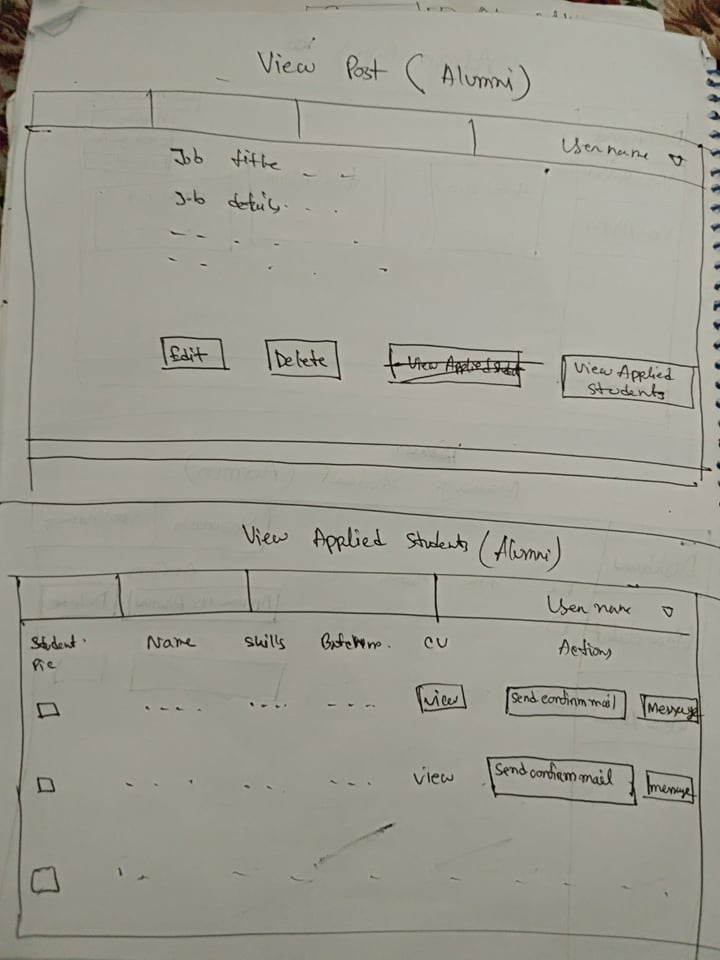 View Post (Alumni)
User name
Job title
Job details
Edit
Delete
View Applied
View Applied
Students
View Applied Students (Alumni)
User name
Student
Pic
Name
skills
Batch no.
CV
Actions
view
Send confirm mail
Message
view
Send confirm mail
message